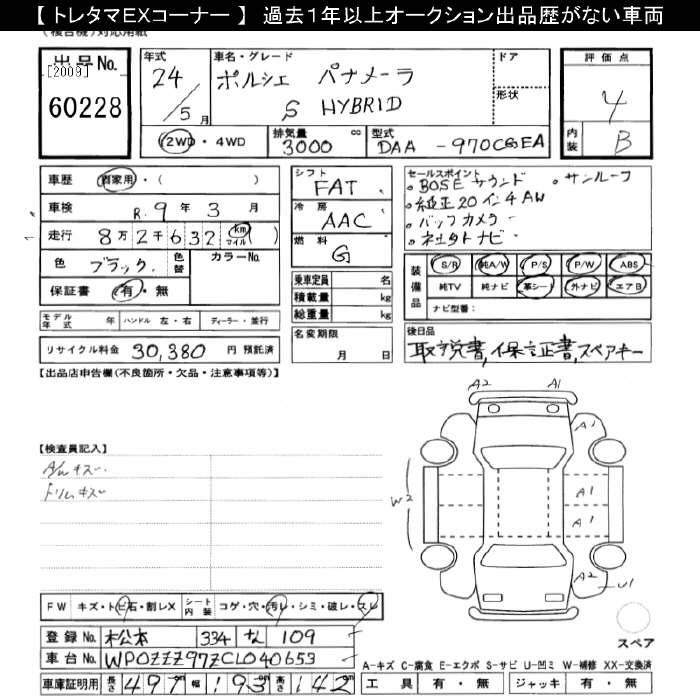 【 トレタマEXコーナー 】 過去1年以上オークション出品歴がない車両
(複合機)対応用紙
出品No.
[2009]
60228
年式
24/5月
車名・グレード
ポルシェ パナメーラ
S HYBRID
ドア
形状
評価点
4
内装 B
2WD・4WD
排気量 3000 cc
型式 DAA-970CGEA
車歴 自家用・( )
車検 R.9年 3月
走行 8万2千632 km マイル ( )
色 ブラック 色替 カラーNo.
保証書 有・無
モデル年式 年 ハンドル 左・右 ディーラー・並行
リサイクル料金 30,380 円 預託済
シフト FAT
冷房 AAC
燃料 G
乗車定員 名
積載量 kg
総重量 kg
名変期限
月 日
セールスポイント
・BOSEサウンド ・サンルーフ
・純正20インチAW
・バックカメラ
・社外ナビ
装備品
S/R 純A/W P/S P/W ABS
純TV 純ナビ 革シート 外ナビ エアB
ナビ型番:
後日品
取説書,保証書,スペアキー
【出品店申告欄(不良箇所・欠品・注意事項等)】
【検査員記入】
A/Wキズ
トリムキズ
A2 A1
A1
W2
A1
A1
A2 U1
スペア
FW キズ・トビ石・割レX シート内装 コゲ・穴・汚レ・シミ・破レ・スレ
登録No. 松本 334 な 109
車台No. WP0ZZZ97ZCL040653
車庫証明用 長さ 497 幅 193 高さ 142
A-キズ C-腐食 E-エクボ S-サビ U-凹ミ W-補修 XX-交換済
工具 有・無 ジャッキ 有・無